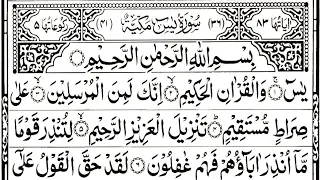 اٰیَاتُهَا ۸۳ (۳۶) سُوْرَةُ یٰسٓ مَكِّیَّةٌ (۴۱) رُكُوْعَاتُهَا ۵
بِسْمِ اللّٰهِ الرَّحْمٰنِ الرَّحِیْمِ
یٰسٓ ۚ وَالْقُرْاٰنِ الْحَكِیْمِ ۙ اِنَّكَ لَمِنَ الْمُرْسَلِیْنَ ۙ عَلٰی
صِرَاطٍ مُّسْتَقِیْمٍ ؕ تَنْزِیْلَ الْعَزِیْزِ الرَّحِیْمِ ۙ لِتُنْذِرَ قَوْمًا
مَّاۤ اُنْذِرَ اٰبَآؤُهُمْ فَهُمْ غٰفِلُوْنَ ۶ لَقَدْ حَقَّ الْقَوْلُ عَلٰۤی